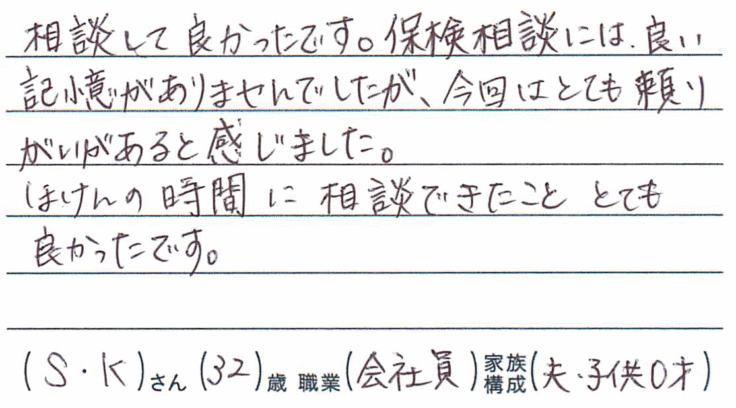 相談して良かったです。保検相談には、良い
記憶がありませんでしたが、今回はとても頼り
がいがあると感じました。
ほけんの時間に相談できたこと とても
良かったです。
(S・K)さん(32)歳 職業(会社員)家族構成(夫・子供0才)